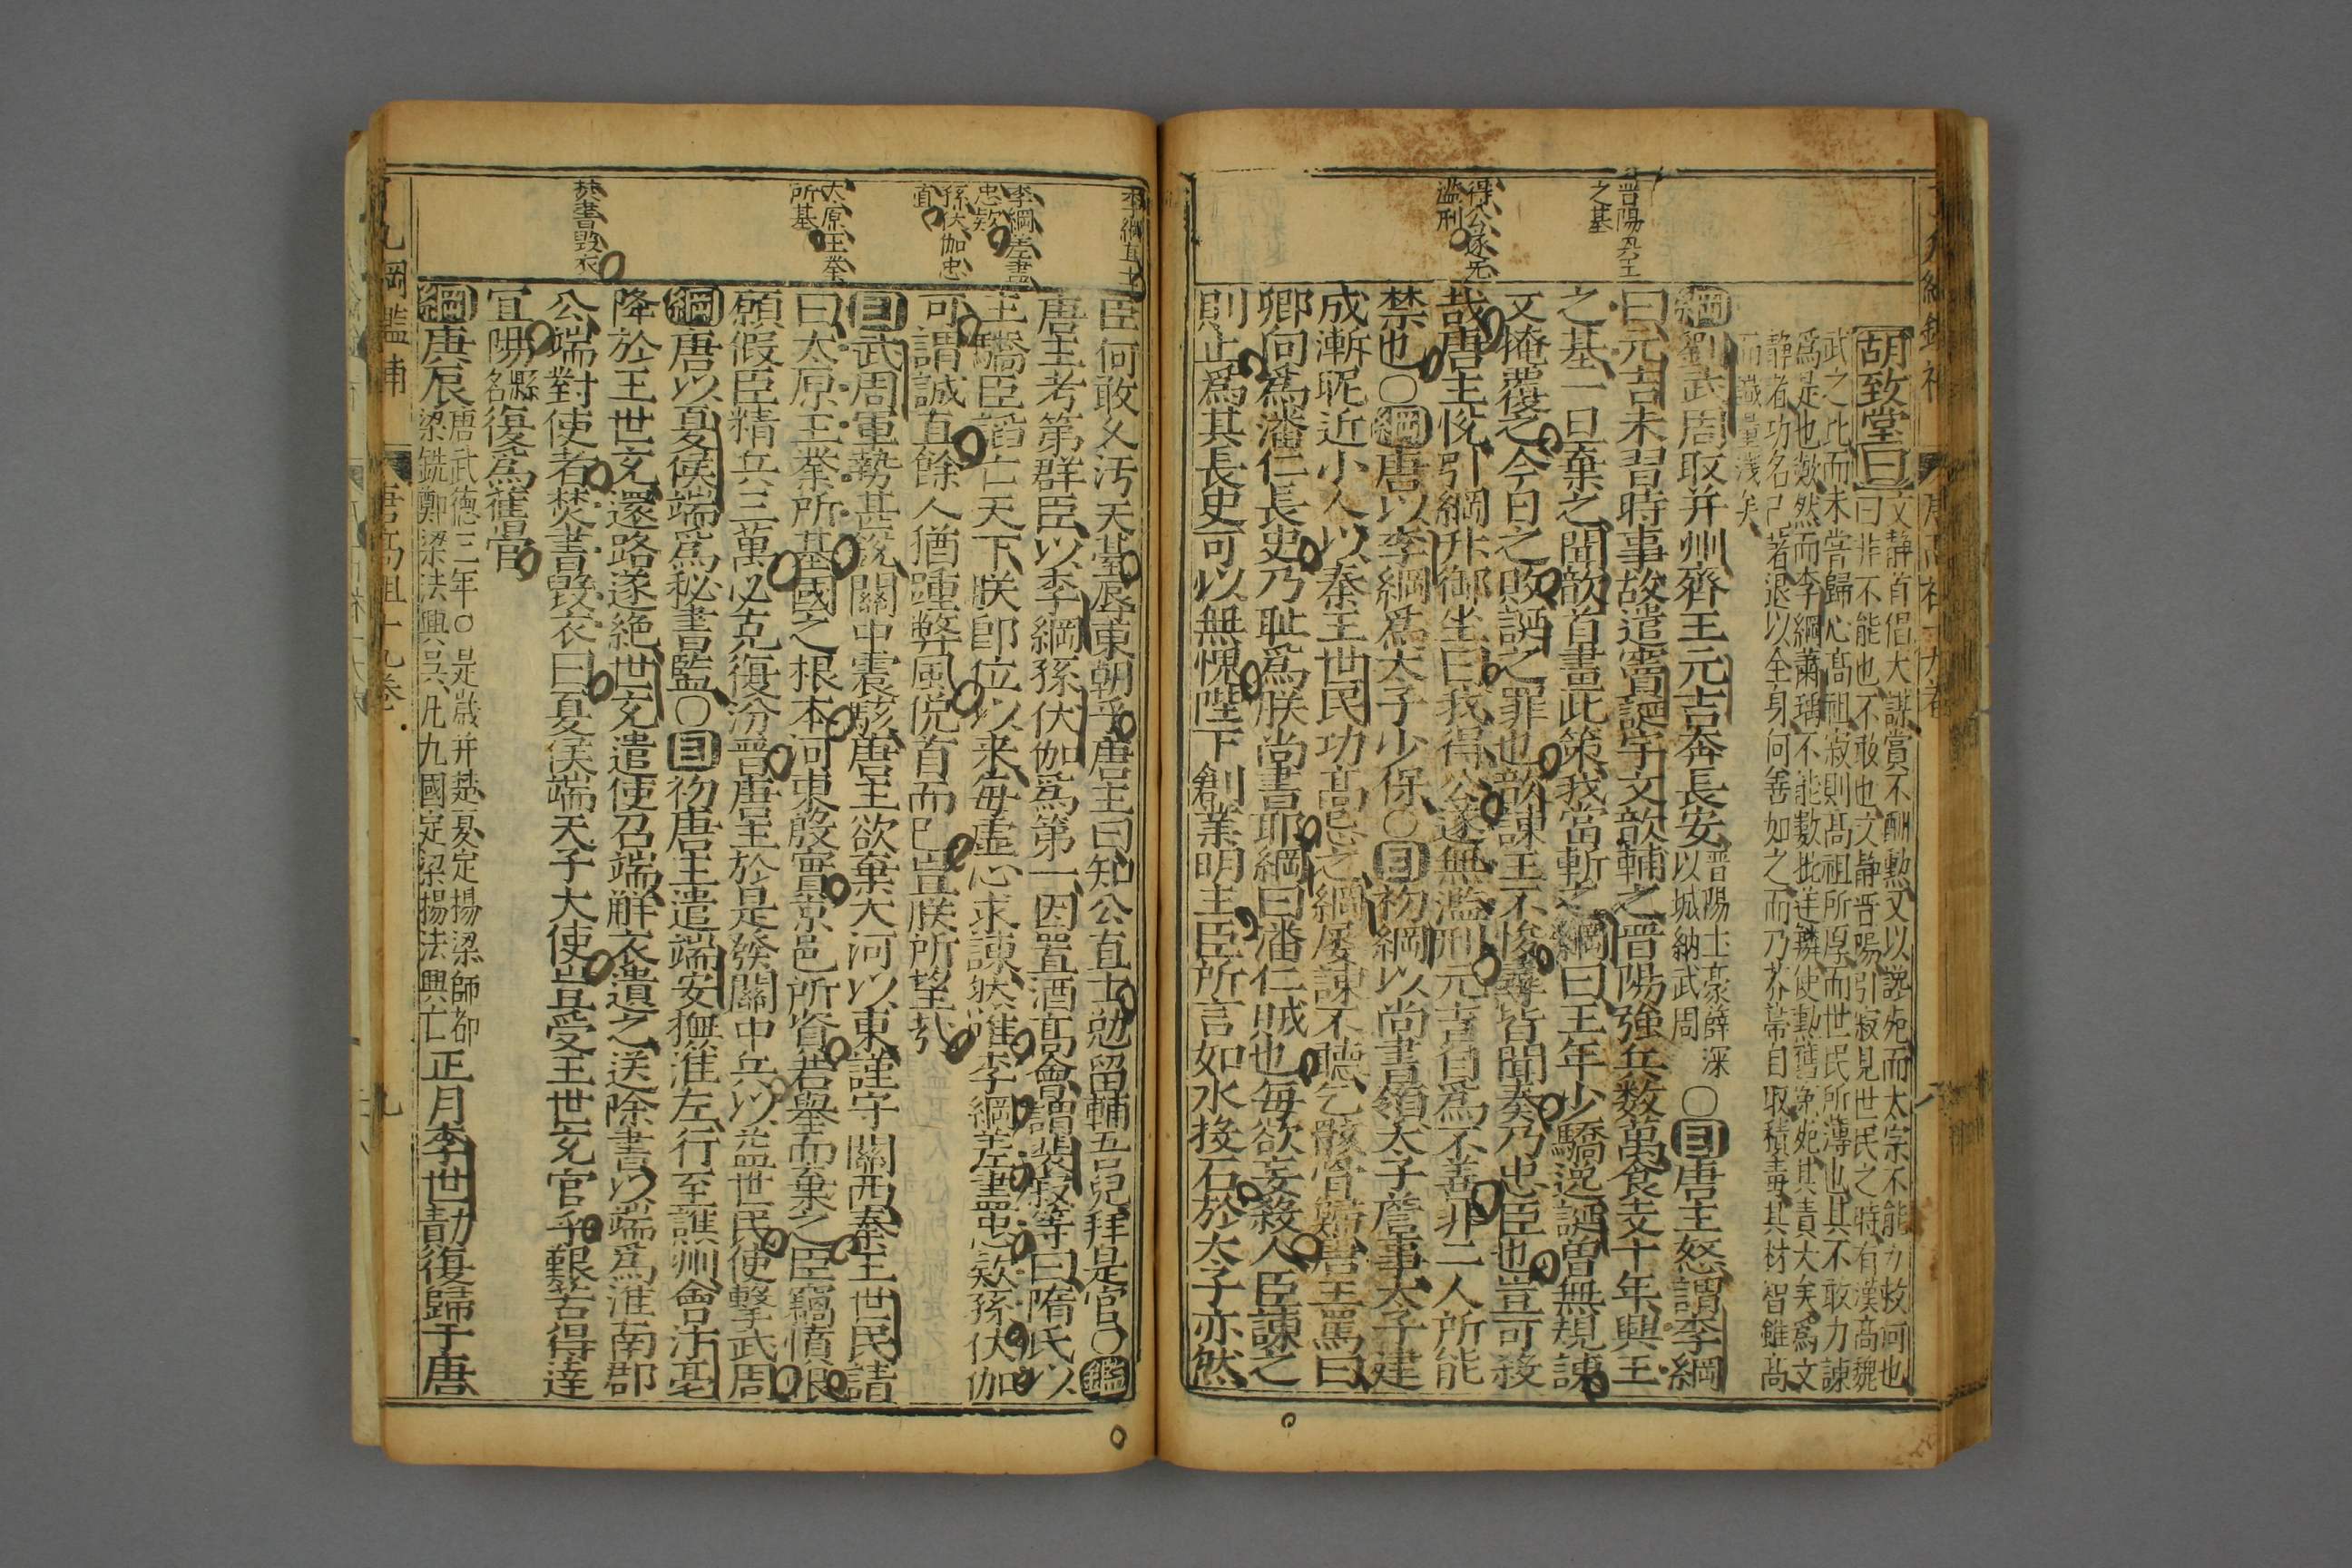 晉陽興王
之基
得公遂无
濫刑
胡致堂曰
文靜首倡大謀賞不酬勲又以讒死而太宗不能力救何也
曰非不能也不敢也文靜晉陽引寂見世民之時有漢高魏
武之比而未嘗歸心高祖寂則高祖所厚而世民所薄也其不敢力諫
爲是也歟然而李綱蕭瑀不能數批逆鱗使勲舊寃死其責大矣爲文
靜者功名已著退以全身何善如之而乃芥蔕自取積毒其材智雖高
而識量淺矣
綱劉武周取并州齊王元吉奔長安晉陽土豪薛深以城納武周○目唐王怒謂李綱
曰元吉未習時事故遣竇誕宇文歆輔之晉陽強兵数萬食支十年興王
之基一旦棄之聞歆首畫此策我當斬之綱曰王年少驕逸誕曾無規諫
又掩覆之今日之敗誕之罪也歆諫王不悛尋皆聞奏乃忠臣也豈可殺
哉唐主悅引綱升御坐曰我得公遂無濫刑元吉自爲不善非二人所能
禁也○綱唐以李綱爲太子少保○目初綱以尚書領太子詹事太子建
成漸昵近小人以秦王世民功高忌之綱屡諫不聽乞骸骨歸唐主罵曰
卿向爲潘仁長史乃耻爲朕尚書耶綱曰潘仁賊也每欲妄殺人臣諫之
則止爲其長史可以無愧陛下創業明主臣所言如水投石於太子亦然
李綱直士
李綱差盡
忠欵
孫伏伽忠
直
太原王業
所基
焚書毀衣
臣何敢久汚天臺辱東朝乎唐主曰知公直士勉留輔吾兒拜是官○鑑
唐主考第群臣以李綱孫伏伽爲第一因置酒高會謂裴寂等曰隋氏以
主驕臣謟亡天下朕卽位以來每虛心求諫然惟李綱差盡忠欵孫伏伽
可謂誠直餘人猶踵弊風俛首而已豈朕所望哉
目武周軍勢甚盛關中震駭唐主欲棄大河以東謹守關西秦王世民請
曰太原王業所基國之根本河東殷實京邑所資若舉而棄之臣竊憤恨
願假臣精兵三萬必克復汾晉唐主於是發關中兵以益世民使擊武周
綱唐以夏侯端爲秘書監○目初唐主遣端安撫淮左行至譙州會汴亳
降於王世充還路遂絶世充遣使召端解衣遺之送除書以端爲淮南郡
公端對使者焚書毀衣曰夏侯端天子大使豈受王世充官乎艱苦得達
宜陽縣名復爲舊官
綱庚辰唐武德三年○是歲并楚夏定揚梁師都梁銑鄭梁法興吳凡九國定梁揚法興亡正月李世勣復歸于唐
綱鑑補 唐高祖十九卷 九